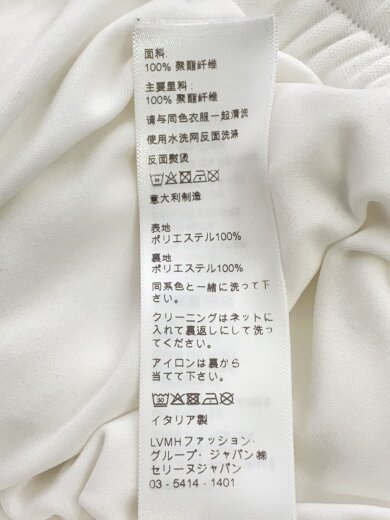 面料:
100% 聚酯纤维
主要里料:
100% 聚酯纤维
请与同色衣服一起清洗
使用水洗网反面洗涤
反面熨烫
意大利制造
表地
ポリエステル100%
裏地
ポリエステル100%
同系色と一緒に洗って下
さい。
クリーニングはネットに
入れて裏返しにして洗っ
てください。
アイロンは裏から
当てて下さい。
イタリア製
LVMHファッション·
グループ·ジャパン㈱
セリーヌジャパン
03-5414-1401